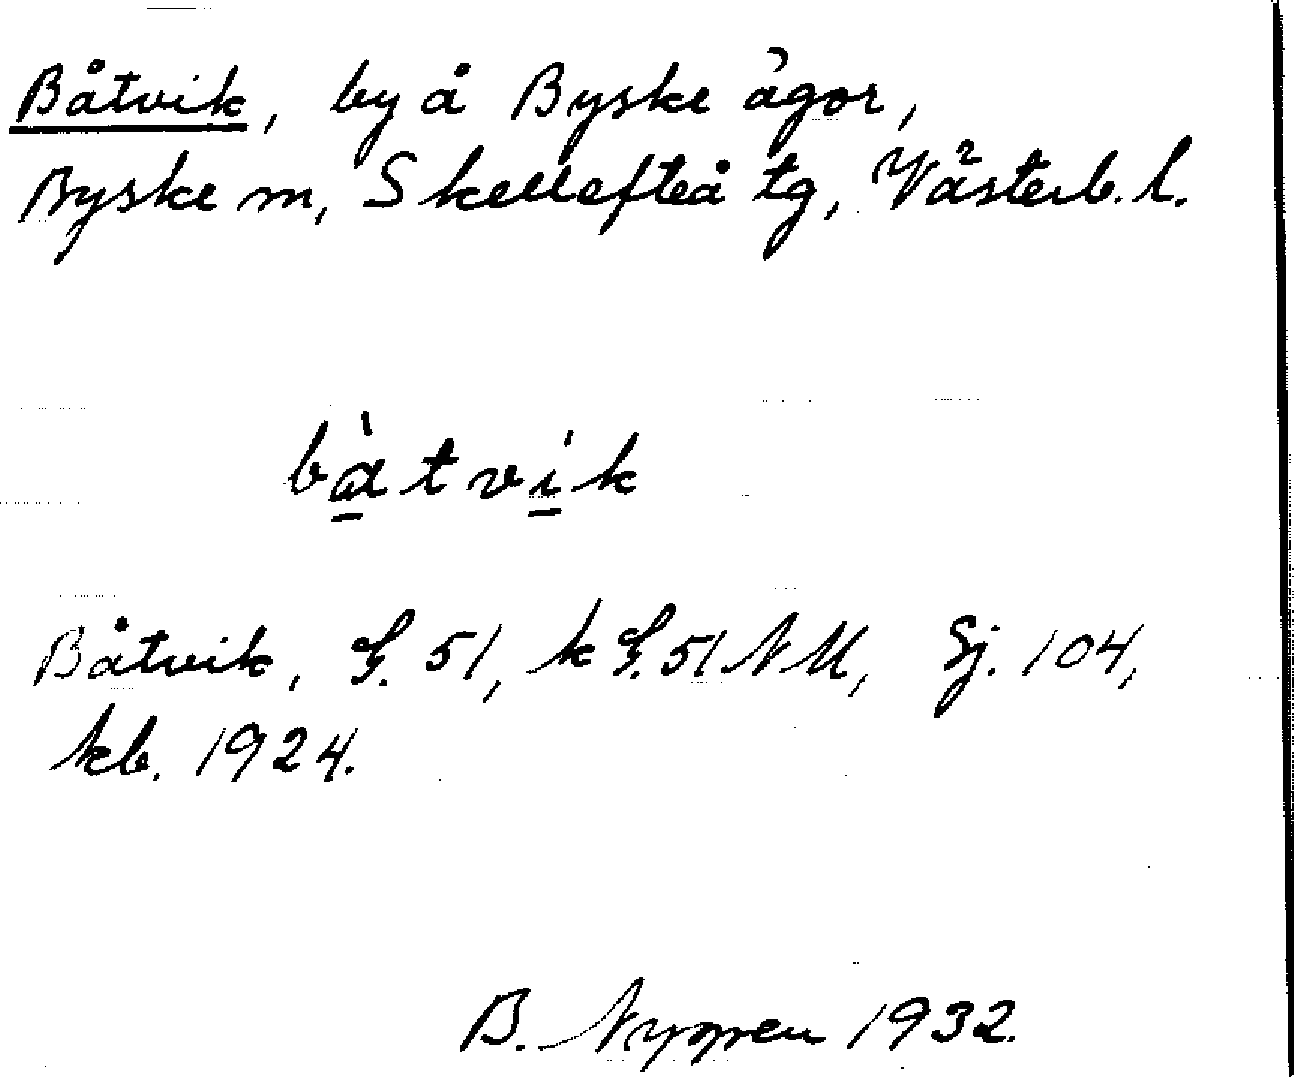 Båtvik, by å Byske ägor,
Byske sn, Skellefteå tg, Västerb. l.
bàtvík
Båtvik, G. 51, k G. 51 NM, Sj. 104,
kb. 1924.
B. 1932.